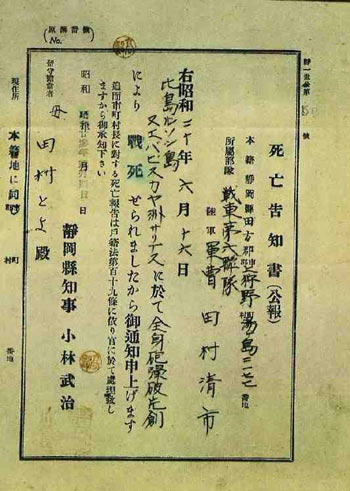 死亡告知書(公報)
本籍 静岡縣田方郡上狩野村湯ヶ島
番地
所属部隊 戦車第六聯隊
陸軍軍曹 田村清市
右昭和二十年六月十六日
比島ルソン島
ヌエバビスカヤ州サリナスに於て全身砲爆破片創
により戰死せられましたから御通知申上げます
追而市町村長に對する死亡報告は戸籍法第百十九條に依り官に於て處理致し
ますから御承知下さい
昭和
靜岡縣知事 小林武治
留守擔當者
母 田村とよ殿
現住所 本籍地に同じ
町
村
番地
No.